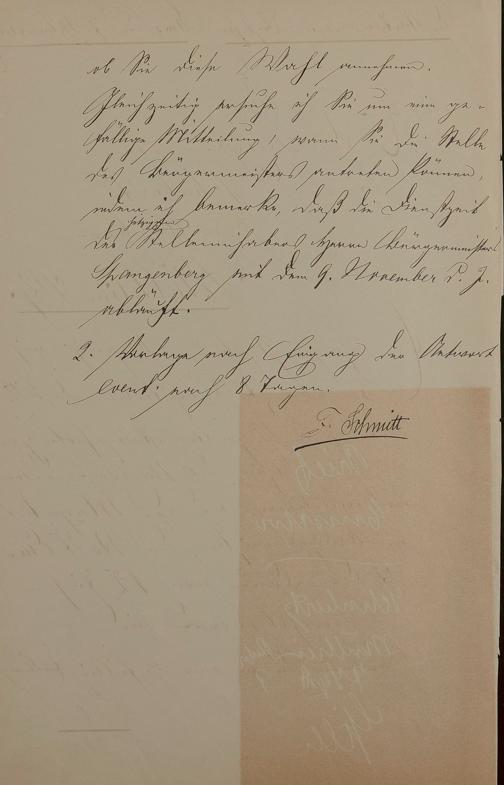 ob Sie diese Wahl annehmen.
Gleichzeitig ersuche ich Sie um eine ge-
fällige Mitteilung, wann Sie die Stelle
des Bürgermeisters antreten können,
indem ich bemerke, daß die Dienstzeit
des jetzigen Stelleninhabers Herrn Bürgermeisters
Spangenberg mit dem 9. November d. J.
abläuft.
2. Vorlage nach Eingang der Antwort
event. nach 8 Tagen.
F. Schmitt